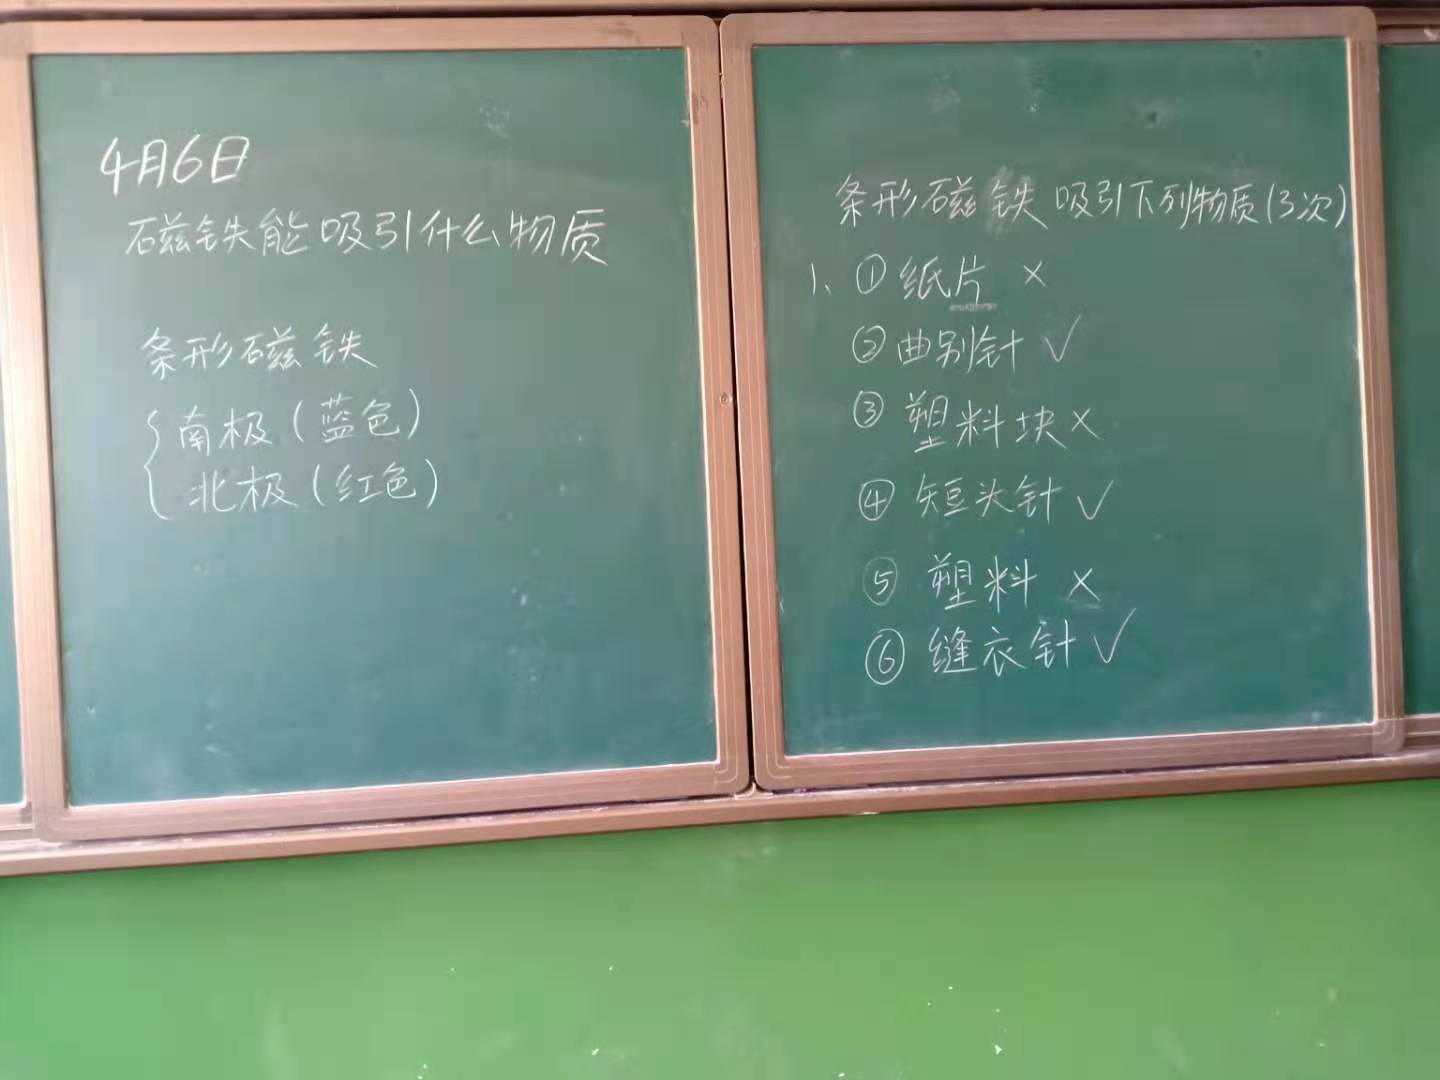 4月6日
磁铁能吸引什么物质
条形磁铁
南极(蓝色)
北极(红色)
条形磁铁吸引下列物质(3次)
1、①纸片 ×
②曲别针 ✓
③塑料块 ×
④短头针 ✓
⑤塑料 ×
⑥缝衣针 ✓